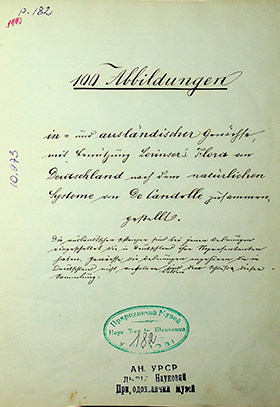 P-182
1990
10.973
100 Abbildungen
in= und ausländischer Gewächse,
mit Benützung Lorinser's Flora von
Deutschland nach dem natürlichen
Systeme von De Candolle zusammen
gestellt.
Die ausländischen Pflanzen sind bei jenen Ordnungen
eingeschaltet die in Deutschland ihre Repräsentanten
haben. Gewächse die Ordnungen angehören die in
Deutschland nicht
Sammlung.
Природничий Музей
Наук. Тов. ім. Шевченка
182
АН. УРСР
Львів Науковий
Природознавчий музей